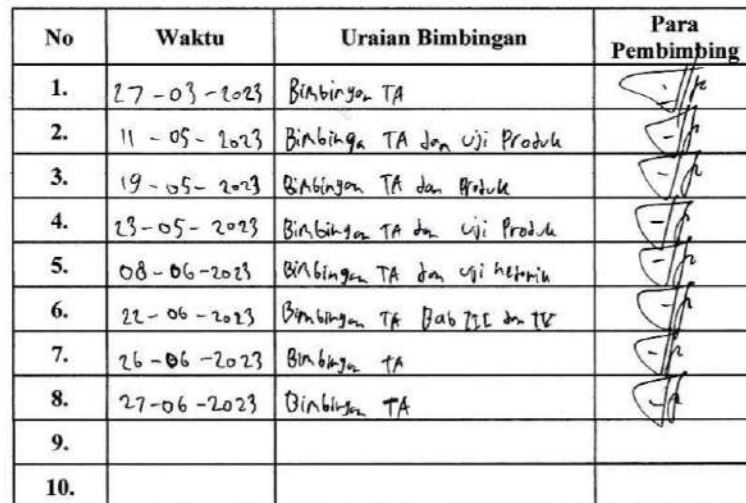 No Waktu Uraian Bimbingan Para Pembimbing
1. 27-03-2023 Bimbingan TA
2. 11-05-2023 Bimbinga TA dan Uji Produk
3. 19-05-2023 Bimbingan TA dan Produk
4. 23-05-2023 Bimbingan TA dan Uji Produk
5. 08-06-2023 Bimbingan TA dan uji
6. 22-06-2023 Bimbingan TA Bab III dan IV
7. 26-06-2023 Bimbingan TA
8. 27-06-2023 Bimbingan TA
9.
10.